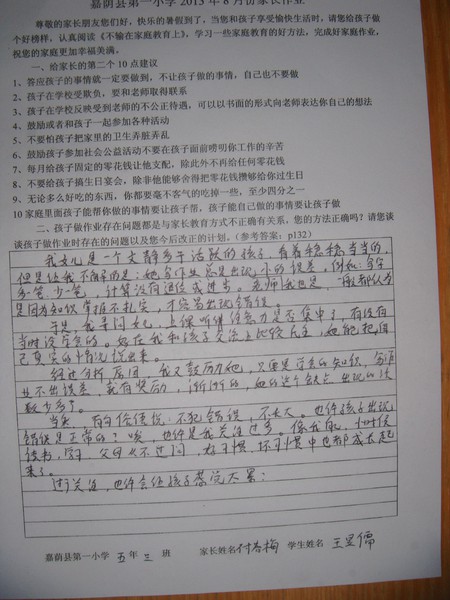 嘉荫县第一小学2013年8月份家长作业
尊敬的家长朋友您们好,快乐的暑假到了,当您和孩子享受愉快生活时,请您给孩子做
个好榜样,认真阅读《不输在家庭教育上》,学习一些家庭教育的好方法,完成好家庭作业,
祝您的家庭更加幸福美满。
一、给家长的第二个10点建议
1、答应孩子的事情就一定要做到,不让孩子做的事情,自己也不要做
2、孩子在学校受欺负,要和老师取得联系
3、孩子在学校反映受到老师的不公正待遇,可以以书面的形式向老师表达你自己的想法
4、鼓励或者和孩子一起参加各种活动
5、不要怕孩子把家里的卫生弄脏弄乱
6、鼓励孩子参加社会公益活动不要在孩子面前唠叨你工作的辛苦
7、每月给孩子固定的零花钱让他支配,除此外不再给任何零花钱
8、不要给孩子搞生日宴会,除非他能够舍得把零花钱攒够给你过生日
9、无论多么好吃的东西,你都要毫不客气的吃掉一些,至少四分之一
10家庭里面孩子能帮你做的事情要让孩子帮,孩子能自己做的事情要让孩子做
二、孩子做作业存在问题都是与家长教育方式不正确有关系,您的方法正确吗?请您谈
谈孩子做作业时存在的问题以及您今后改正的计划。(参考答案:p132)
我女儿是一个文静多于活跃的孩子,看着稳稳当当的,
但是让我不解的是:她写作业总是出现小的误差,例如:多写
多一笔,少一笔,计算没有进位或进步。老师和我也是,一般都认为
是因为知识掌握不扎实,才容易出现错误。
于是,我寻问女儿,上课听讲注意力是否集中了,有没有
当时没学会的。她在我和孩子交流上比较民主,她能把自
己真实的情况说出来。
经过分析原因,我又鼓励她,只要是学会的知识,写作
业不出误差,就有奖励,渐渐的,她的这个缺点出现的次
数少多了。
当然,有句俗话说:不犯错误,不长大。也许孩子出现
错误是正常的?唉,也许是我关注过多。像我们儿时候
读书,学习,父母从不过问,好习惯,坏习惯中也都成长起
来了。
过于关注,也许会给孩子
嘉荫县第一小学 五年三班 家长姓名 付春梅 学生姓名 王昱儒